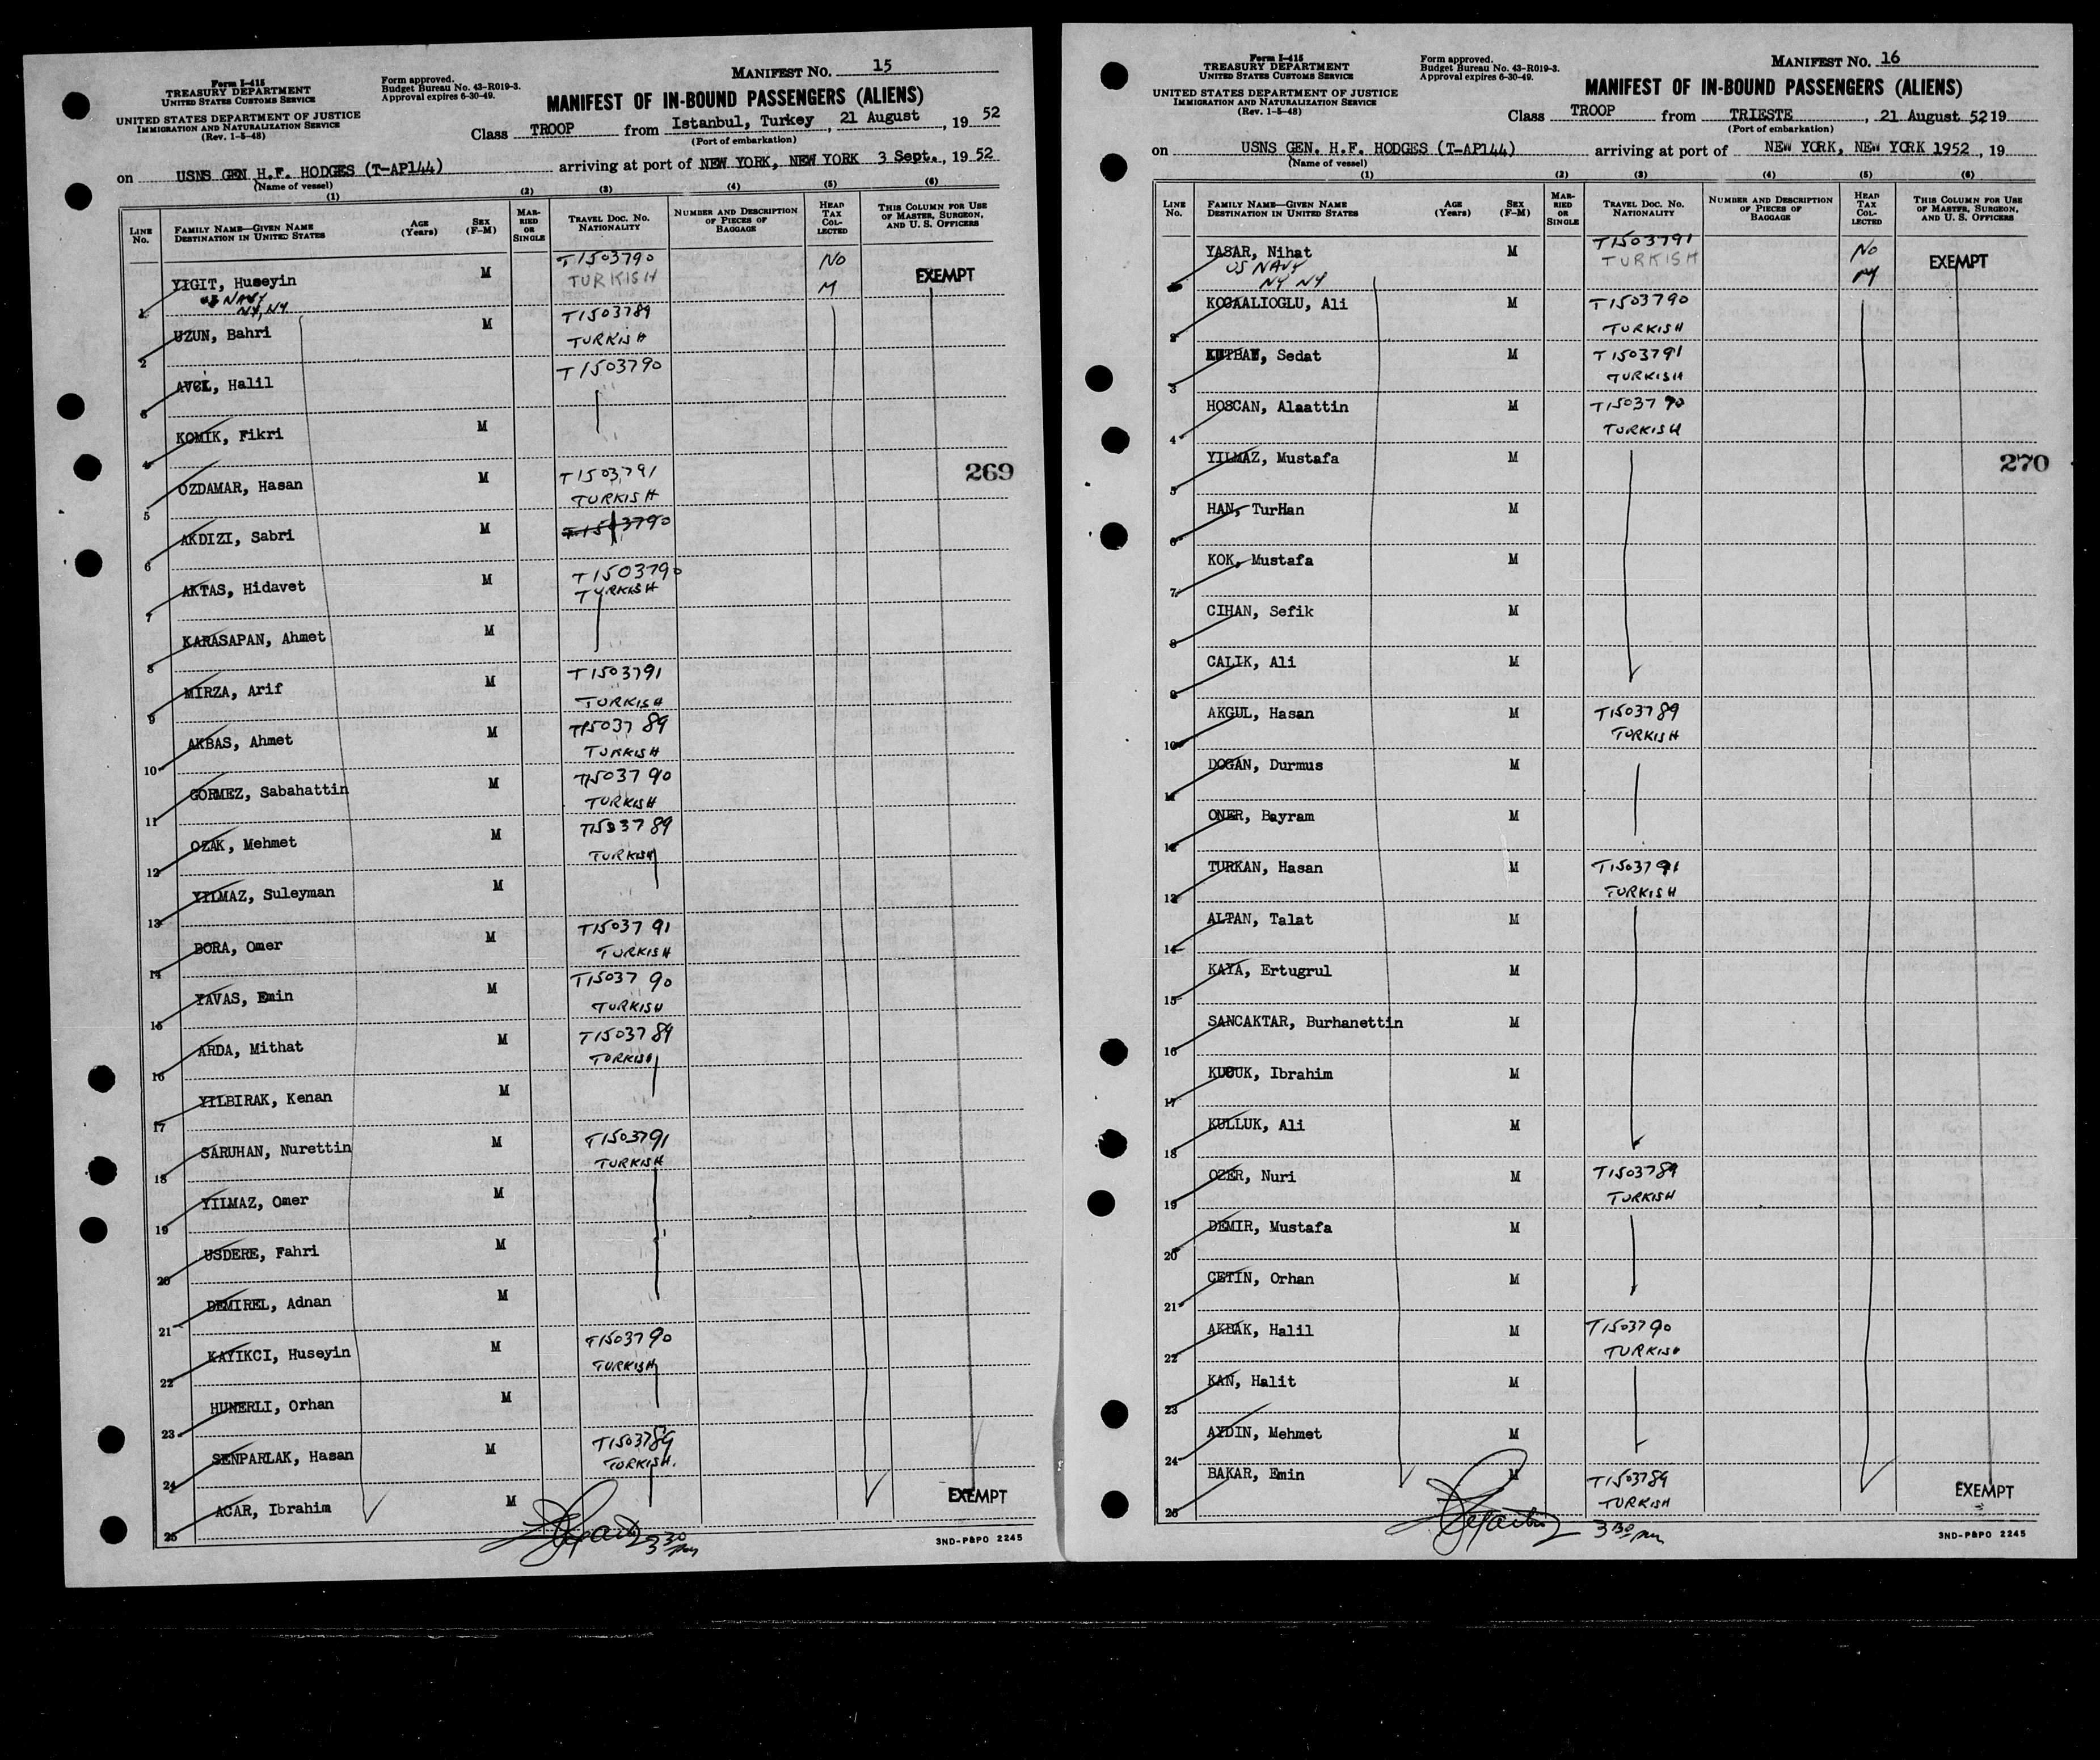 MANIFEST NO. 15
Form I-415
TREASURY DEPARTMENT
UNITED STATES CUSTOMS SERVICE
UNITED STATES DEPARTMENT OF JUSTICE
IMMIGRATION AND NATURALIZATION SERVICE
(Rev. 1-5-48)
Form approved.
Budget Bureau No. 43-R019-3.
Approval expires 6-30-49.
MANIFEST OF IN-BOUND PASSENGERS (ALIENS)
Class TROOP from Istanbul, Turkey, 21 August, 19 52
(Port of embarkation)
on USNS GEN H.F. HODGES (T-AP144) arriving at port of NEW YORK, NEW YORK 3 Sept., 19 52
(Name of vessel)
(1) (2) (3) (4) (5) (6)
LINE No. FAMILY NAME—GIVEN NAME DESTINATION IN UNITED STATES AGE (Years) SEX (F-M) MARRIED OR SINGLE TRAVEL DOC. NO. NATIONALITY NUMBER AND DESCRIPTION OF PIECES OF BAGGAGE HEAD TAX COLLECTED THIS COLUMN FOR USE OF MASTER, SURGEON, AND U. S. OFFICERS
1 YIGIT, Huseyin M T1503790 TURKISH No EXEMPT
US NAVY
NY, NY
2 UZUN, Bahri M T1503789 TURKISH
3 AVCI, Halil T1503790
4 KOMIK, Fikri M
269
5 OZDAMAR, Hasan M T1503791 TURKISH
6 AKDIZI, Sabri M T1503790
7 AKTAS, Hidavet M T1503790 TURKISH
8 KARASAPAN, Ahmet M
9 MIRZA, Arif M T1503791 TURKISH
10 AKBAS, Ahmet M T1503789 TURKISH
11 GORMEZ, Sabahattin M T1503790 TURKISH
12 OZAK, Mehmet M T1503789 TURKISH
13 YILMAZ, Suleyman M
14 BORA, Omer M T1503791 TURKISH
15 YAVAS, Emin M T1503790 TURKISH
16 ARDA, Mithat M T1503789 TURKISH
17 YILBIRAK, Kenan M
18 SARUHAN, Nurettin M T1503791 TURKISH
19 YILMAZ, Omer M
20 USDERE, Fahri M
21 DEMIREL, Adnan M
22 KAYIKCI, Huseyin M T1503790 TURKISH
23 HUNERLI, Orhan M
24 SENPARLAK, Hasan M T1503789 TURKISH.
25 ACAR, Ibrahim M EXEMPT
3 30 pm
3ND-P&PO 2245
MANIFEST NO. 16
Form I-415
TREASURY DEPARTMENT
UNITED STATES CUSTOMS SERVICE
UNITED STATES DEPARTMENT OF JUSTICE
IMMIGRATION AND NATURALIZATION SERVICE
(Rev. 1-5-48)
Form approved.
Budget Bureau No. 43-R019-3.
Approval expires 6-30-49.
MANIFEST OF IN-BOUND PASSENGERS (ALIENS)
Class TROOP from TRIESTE, 21 August 52 19
(Port of embarkation)
on USNS GEN. H.F. HODGES (T-AP144) arriving at port of NEW YORK, NEW YORK 1952, 19
(Name of vessel)
(1) (2) (3) (4) (5) (6)
LINE No. FAMILY NAME—GIVEN NAME DESTINATION IN UNITED STATES AGE (Years) SEX (F-M) MARRIED OR SINGLE TRAVEL DOC. NO. NATIONALITY NUMBER AND DESCRIPTION OF PIECES OF BAGGAGE HEAD TAX COLLECTED THIS COLUMN FOR USE OF MASTER, SURGEON, AND U. S. OFFICERS
YASAR, Nihat M T1503791 TURKISH No EXEMPT
US NAVY
NY NY
2 KOCAALIOGLU, Ali M T1503790 TURKISH
3 Sedat M T1503791 TURKISH
4 HOSCAN, Alaattin M T1503790 TURKISH
270
5 YILMAZ, Mustafa M
6 HAN, TurHan M
7 KOK, Mustafa M
8 CIHAN, Sefik M
9 CALIK, Ali M
10 AKGUL, Hasan M T1503789 TURKISH
11 DOGAN, Durmus M
12 ONER, Bayram M
13 TURKAN, Hasan M T1503791 TURKISH
14 ALTAN, Talat M
15 KAYA, Ertugrul M
16 SANCAKTAR, Burhanettin M
17 KUCUK, Ibrahim M
18 KULLUK, Ali M
19 OZER, Nuri M T1503789 TURKISH
20 DEMIR, Mustafa M
21 CETIN, Orhan M
22 AKBAK, Halil M T1503790 TURKISH
23 KAN, Halit M
24 AYDIN, Mehmet M
25 BAKAR, Emin M T1503789 TURKISH EXEMPT
3 30 pm
3ND-P&PO 2245